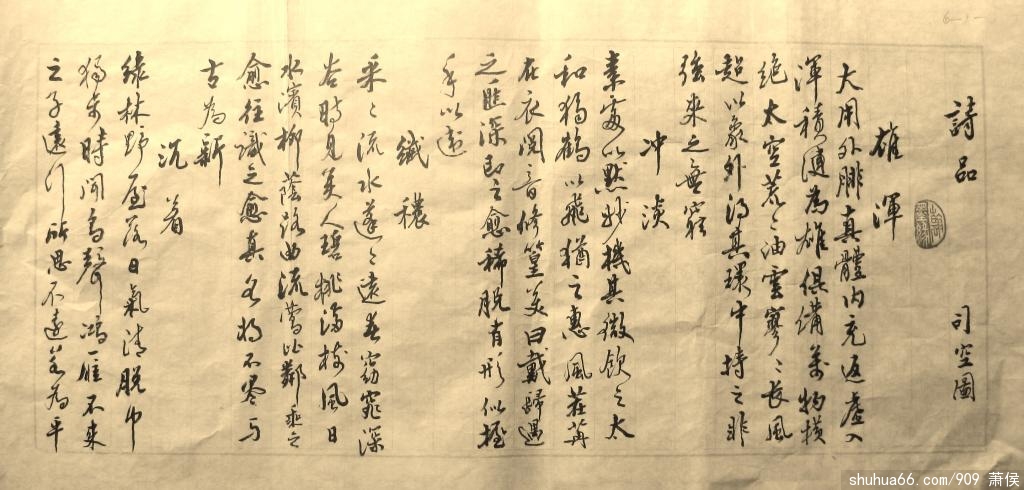 詩品 司空圖
雄渾
大用外腓真體内充返虛入
渾積為雄俱備萬物橫
絶太空荒〻油雲寥〻長風
超以象外得其環中持之非
強來之無窮
冲淡
素處以默妙機其微飲之太
和獨鶴以飛猶之惠風荏苒
在衣閱音修篁美曰戴歸遇
之匪深即之愈稀脱有形似握
手以違
纖穠
采〻流水蓬〻遠春窈窕深
谷時見美人碧桃滿樹風日
水濱柳蔭路曲流鶯比鄰乘之
愈往識之愈真如將不零与
古為新
沉着
緑林野屋落日氣清脱巾
獨步時聞鳥聲鴻雁不來
之子遠行所思不遠若為平
shuhua66.com/909 萧侯